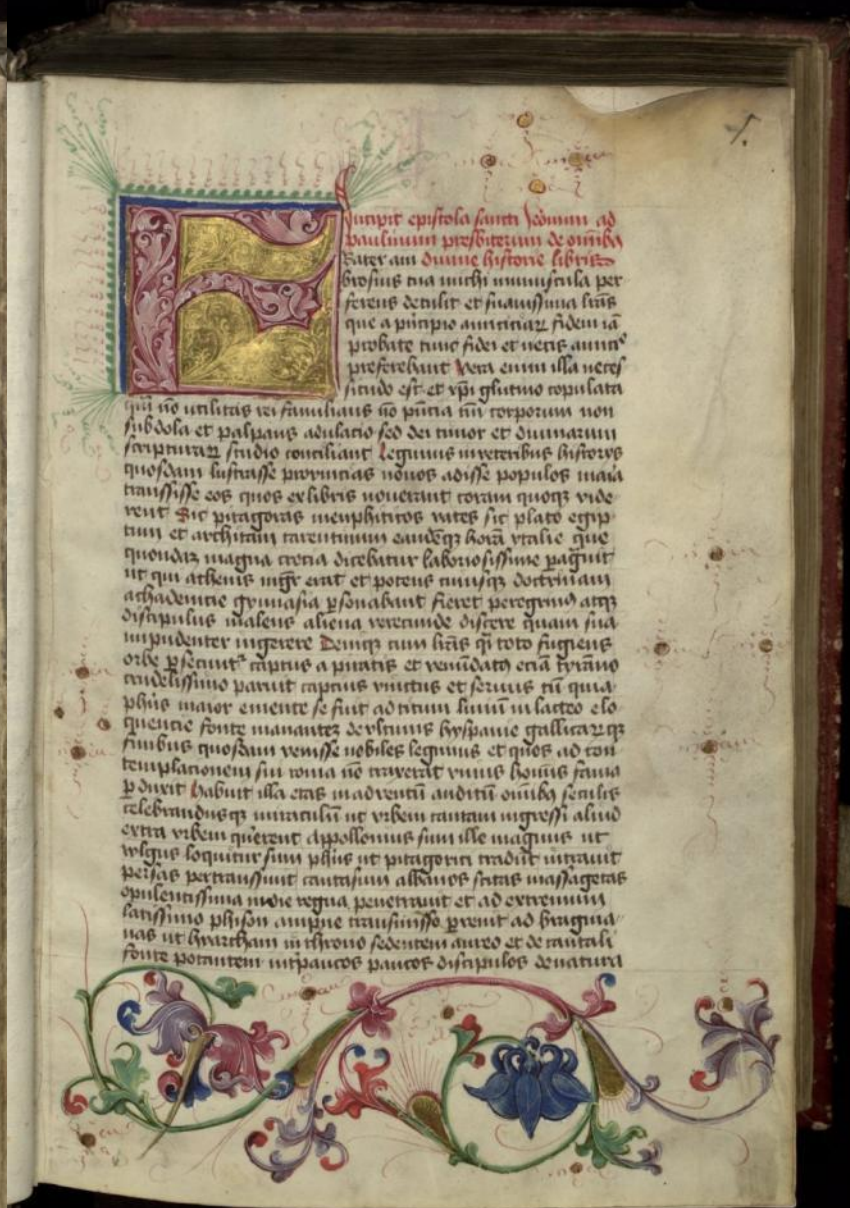 1.
F
Incipit epistola sancti Jeronimi ad
paulinum presbiterum de omnibꝰ
Rater am divine historie libris
brosius tua michi munuscula per
ferens detulit et suauissima lr̃as
que a pͥncipio amiciciaꝝ fidem iã
probate iam fidei et veteris amicicͥ
preferebant Vera enim illa neces
situdo est et xp̃i glutino copulata
quã nõ utilitas rei familiaris nõ p̃ncia tm̃ corporum non
subdola et palpans adulacio sed dei timor et diuinarum
scripturaꝝ studio conciliant Legimus in veteribus historys
quosdam lustrasse provincias nouos adisse populos maria
transisse eos quos ex libris nouerant coram quoqꝫ vide
rent Sic pitagoras memphiticos vates sic plato egip
tum et architam tarentinum eandẽqꝫ horã ytalie que
quondaꝫ magna crecia dicebatur laboriosissime ꝑagrãuit
ut qui athenis mgr̃ erat et potens cuiusqꝫ doctrinam
achademie gymnasia ꝑsonabant fieret peregrinꝰ atqꝫ
discipulus malens aliena verecunde discere quam sua
impudenter ingerere Deniqꝫ cum lr̃as qͥ toto fugiens
orbe ꝑsequitͬ captus a piratis et venũdatꝰ eciã tyrãno
crudelissimo paruit captius vinctus et seruus tñ quia
ph̃us maior emente se fuit ad titum liuiũ lacteo elo
quencie fonte mananteꝫ de vltimis hyspanie gallicaꝝqꝫ
finibus quosdam venisse nobiles legimus et quos ad con
templacionem sui roma nõ traxerat vnius hominis fama
ꝑduxit Habuit illa etas inauditũ omnibꝰ seculis
celebrandusqꝫ miraculũ ut vrbem tantam ingressi aliud
extra vrbem quererent Appollonius siue ille magnus ut
wlgus loquitur siue ph̃us ut pitagorici tradũt intrauit
persas pertransiuit caucasum albanos scitas massagetas
opulentissima indie regna penetrauit et ad extremum
latissimo phison ampne transmisso ꝑuenit ad bragma
nas ut hyarcham in throno sedentem aureo et de tantali
fonte potantem int̃ paucos discipulos de natura